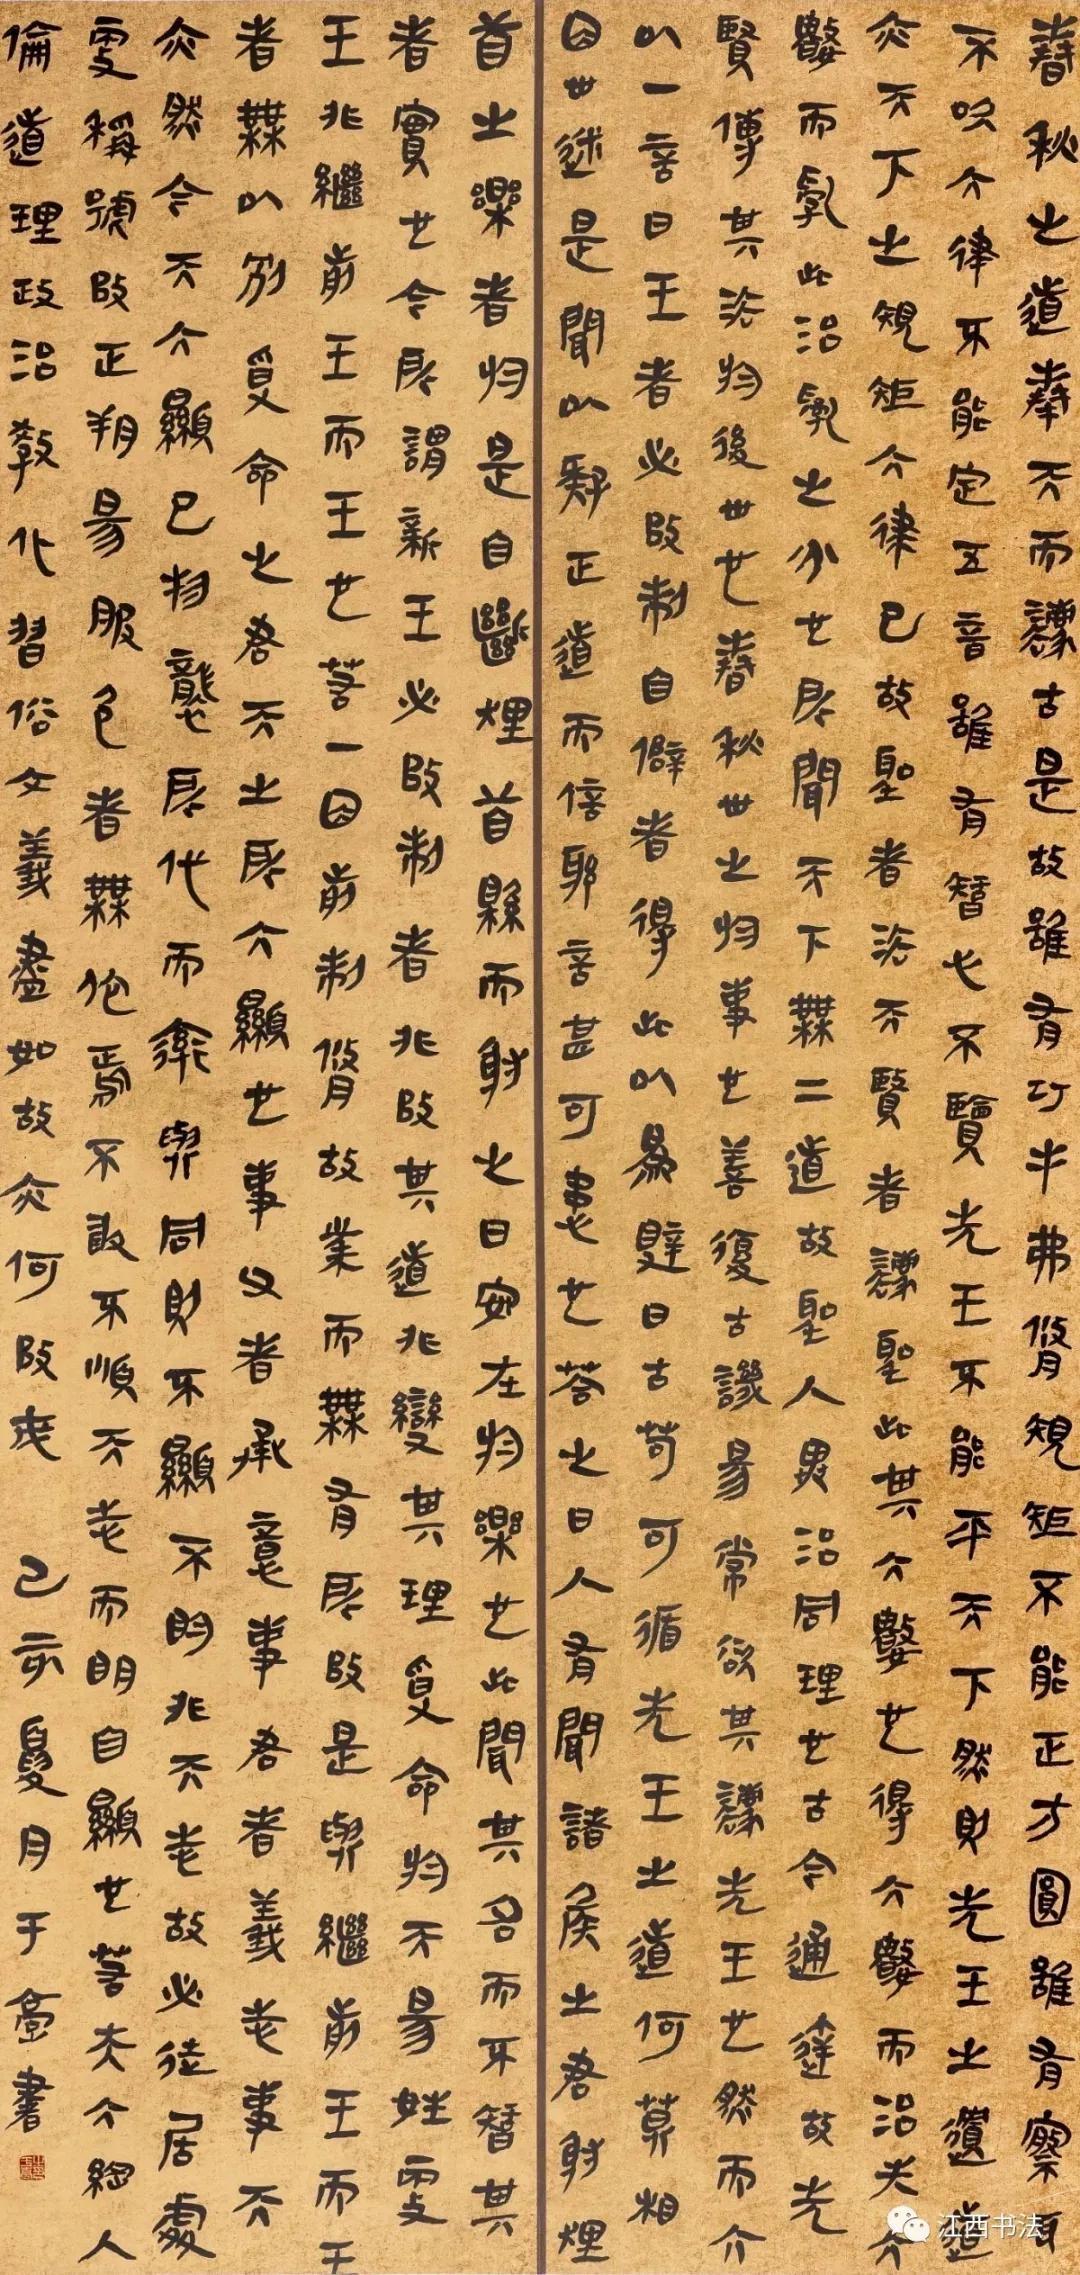 春秋之道奉天而灋古是故雖有巧手弗脩規矩不能正方圓雖有察耳
不吹六律不能定五音雖有智心不覽先王不能平天下然則先王之遺道
亦天下之規矩六律已故聖者法天賢者灋聖此其大數也得大數而治失大
數而亂此治亂之分也所聞天下無二道故聖人異治同理也古今通達故先
賢傳其法於後世也春秋世之於事也善復古譏易常欲其灋先王也然而介
以一言曰王者必改制自僻者得此以為辟曰古苟可循先王之道何莫相
因世迷是聞以疑正道而信邪言甚可患也答之曰人有聞諸侯之君射貍
首之樂者於是自斷貍首縣而射之曰安在於樂也此聞其名而不智其
者實也今所謂新王必改制者非改其道非變其理受命於天易姓更
王非繼前王而王也若一因前制脩故業而無有所改是與繼前王而王
者無以別受命之君天之所大顯也事父者承意事君者義志事天
亦然今天大顯已物襲所代而率與同則不顯不明非天志故必徙居處
更稱號改正朔易服色者無他焉不敢不順天志而明自顯也若夫大綱人
倫道理政治教化習俗文義盡如故亦何改哉 己亥夏月于書
江西书法